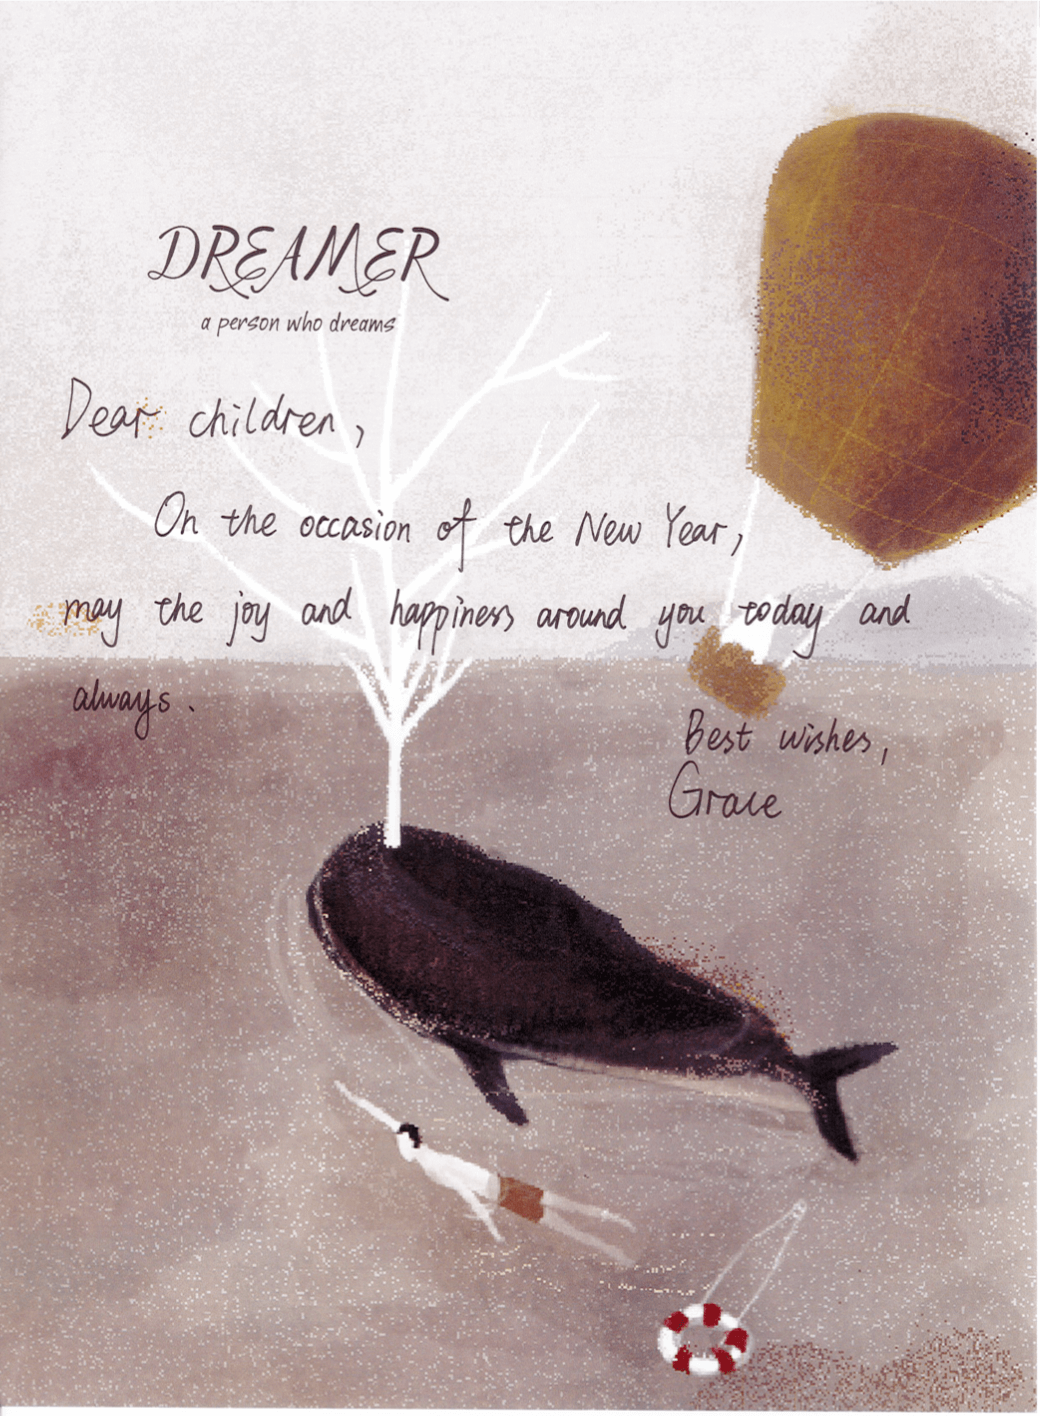 DREAMER
a person who dreams
Dear children,
On the occasion of the New Year,
may the joy and happiness around you today and
always.
Best wishes,
Grace